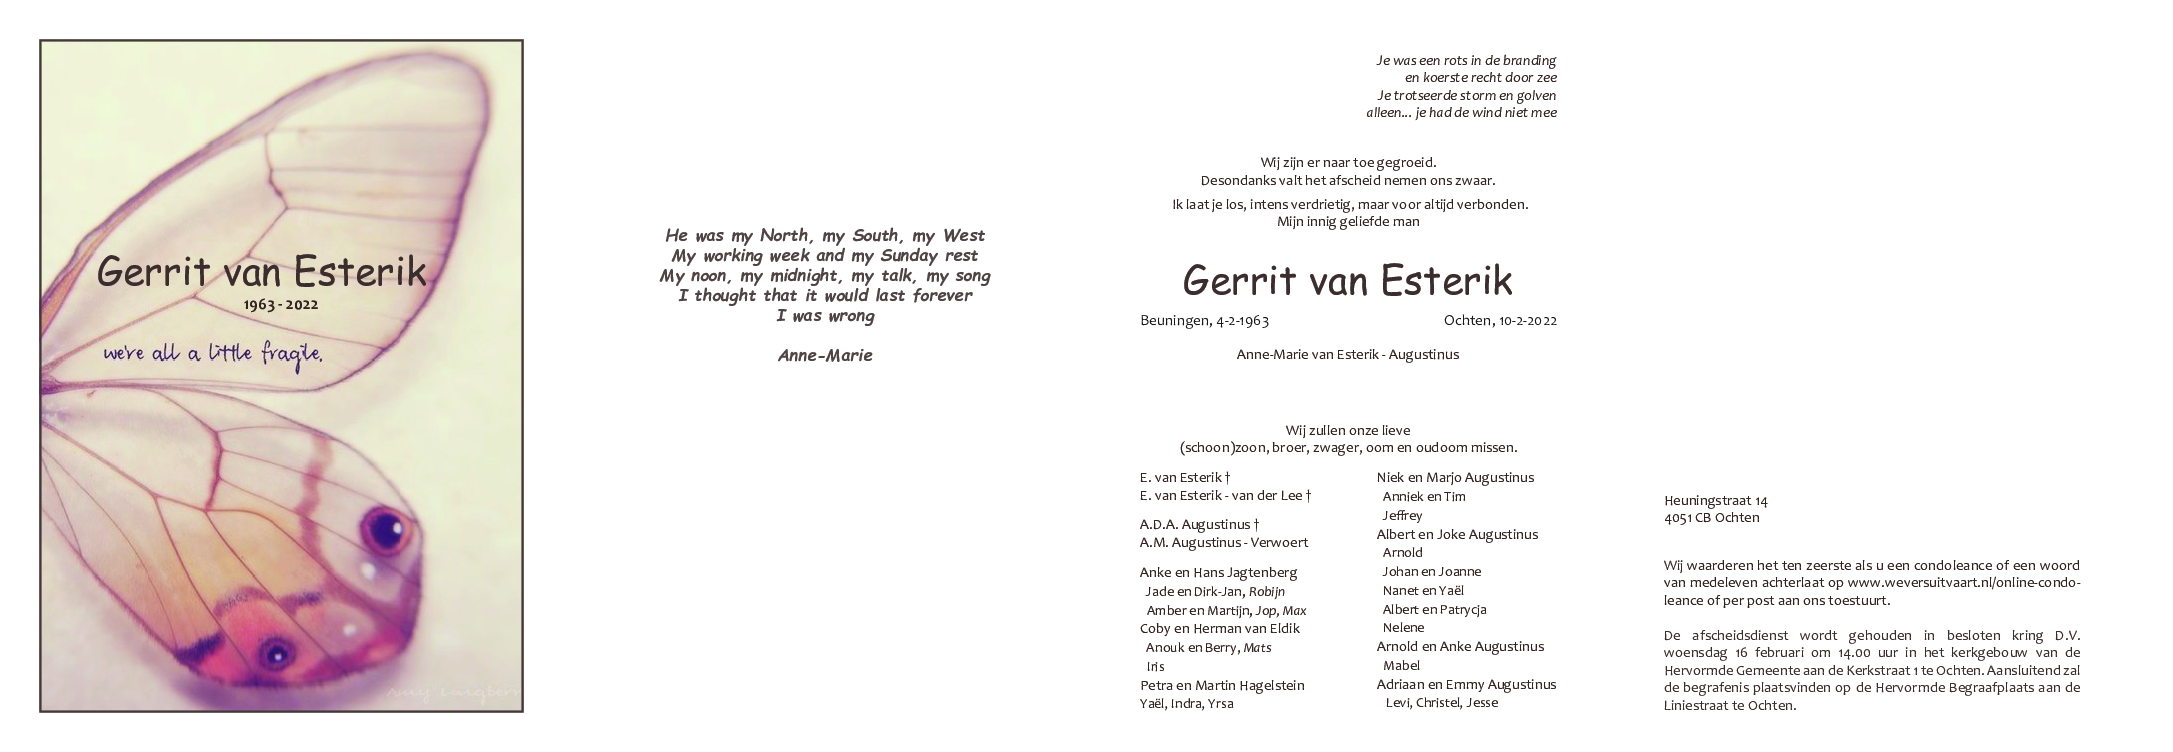 Gerrit van Esterik
1963 - 2022
we're all a little fragile.
He was my North, my South, my West
My working week and my Sunday rest
My noon, my midnight, my talk, my song
I thought that it would last forever
I was wrong
Anne-Marie
Je was een rots in de branding
en koerste recht door zee
Je trotseerde storm en golven
alleen... je had de wind niet mee
Wij zijn er naar toe gegroeid.
Desondanks valt het afscheid nemen ons zwaar.
Ik laat je los, intens verdrietig, maar voor altijd verbonden.
Mijn innig geliefde man
Gerrit van Esterik
Beuningen, 4-2-1963 Ochten, 10-2-2022
Anne-Marie van Esterik - Augustinus
Wij zullen onze lieve
(schoon)zoon, broer, zwager, oom en oudoom missen.
E. van Esterik †
E. van Esterik - van der Lee †
A.D.A. Augustinus †
A.M. Augustinus - Verwoert
Anke en Hans Jagtenberg
Jade en Dirk-Jan, Robijn
Amber en Martijn, Jop, Max
Coby en Herman van Eldik
Anouk en Berry, Mats
Iris
Petra en Martin Hagelstein
Yaël, Indra, Yrsa
Niek en Marjo Augustinus
Anniek en Tim
Jeffrey
Albert en Joke Augustinus
Arnold
Johan en Joanne
Nanet en Yaël
Albert en Patrycja
Nelene
Arnold en Anke Augustinus
Mabel
Adriaan en Emmy Augustinus
Levi, Christel, Jesse
Heuningstraat 14
4051 CB Ochten
Wij waarderen het ten zeerste als u een condoleance of een woord
van medeleven achterlaat op www.weversuitvaart.nl/online-condo-
leance of per post aan ons toestuurt.
De afscheidsdienst wordt gehouden in besloten kring D.V.
woensdag 16 februari om 14.00 uur in het kerkgebouw van de
Hervormde Gemeente aan de Kerkstraat 1 te Ochten. Aansluitend zal
de begrafenis plaatsvinden op de Hervormde Begraafplaats aan de
Liniestraat te Ochten.